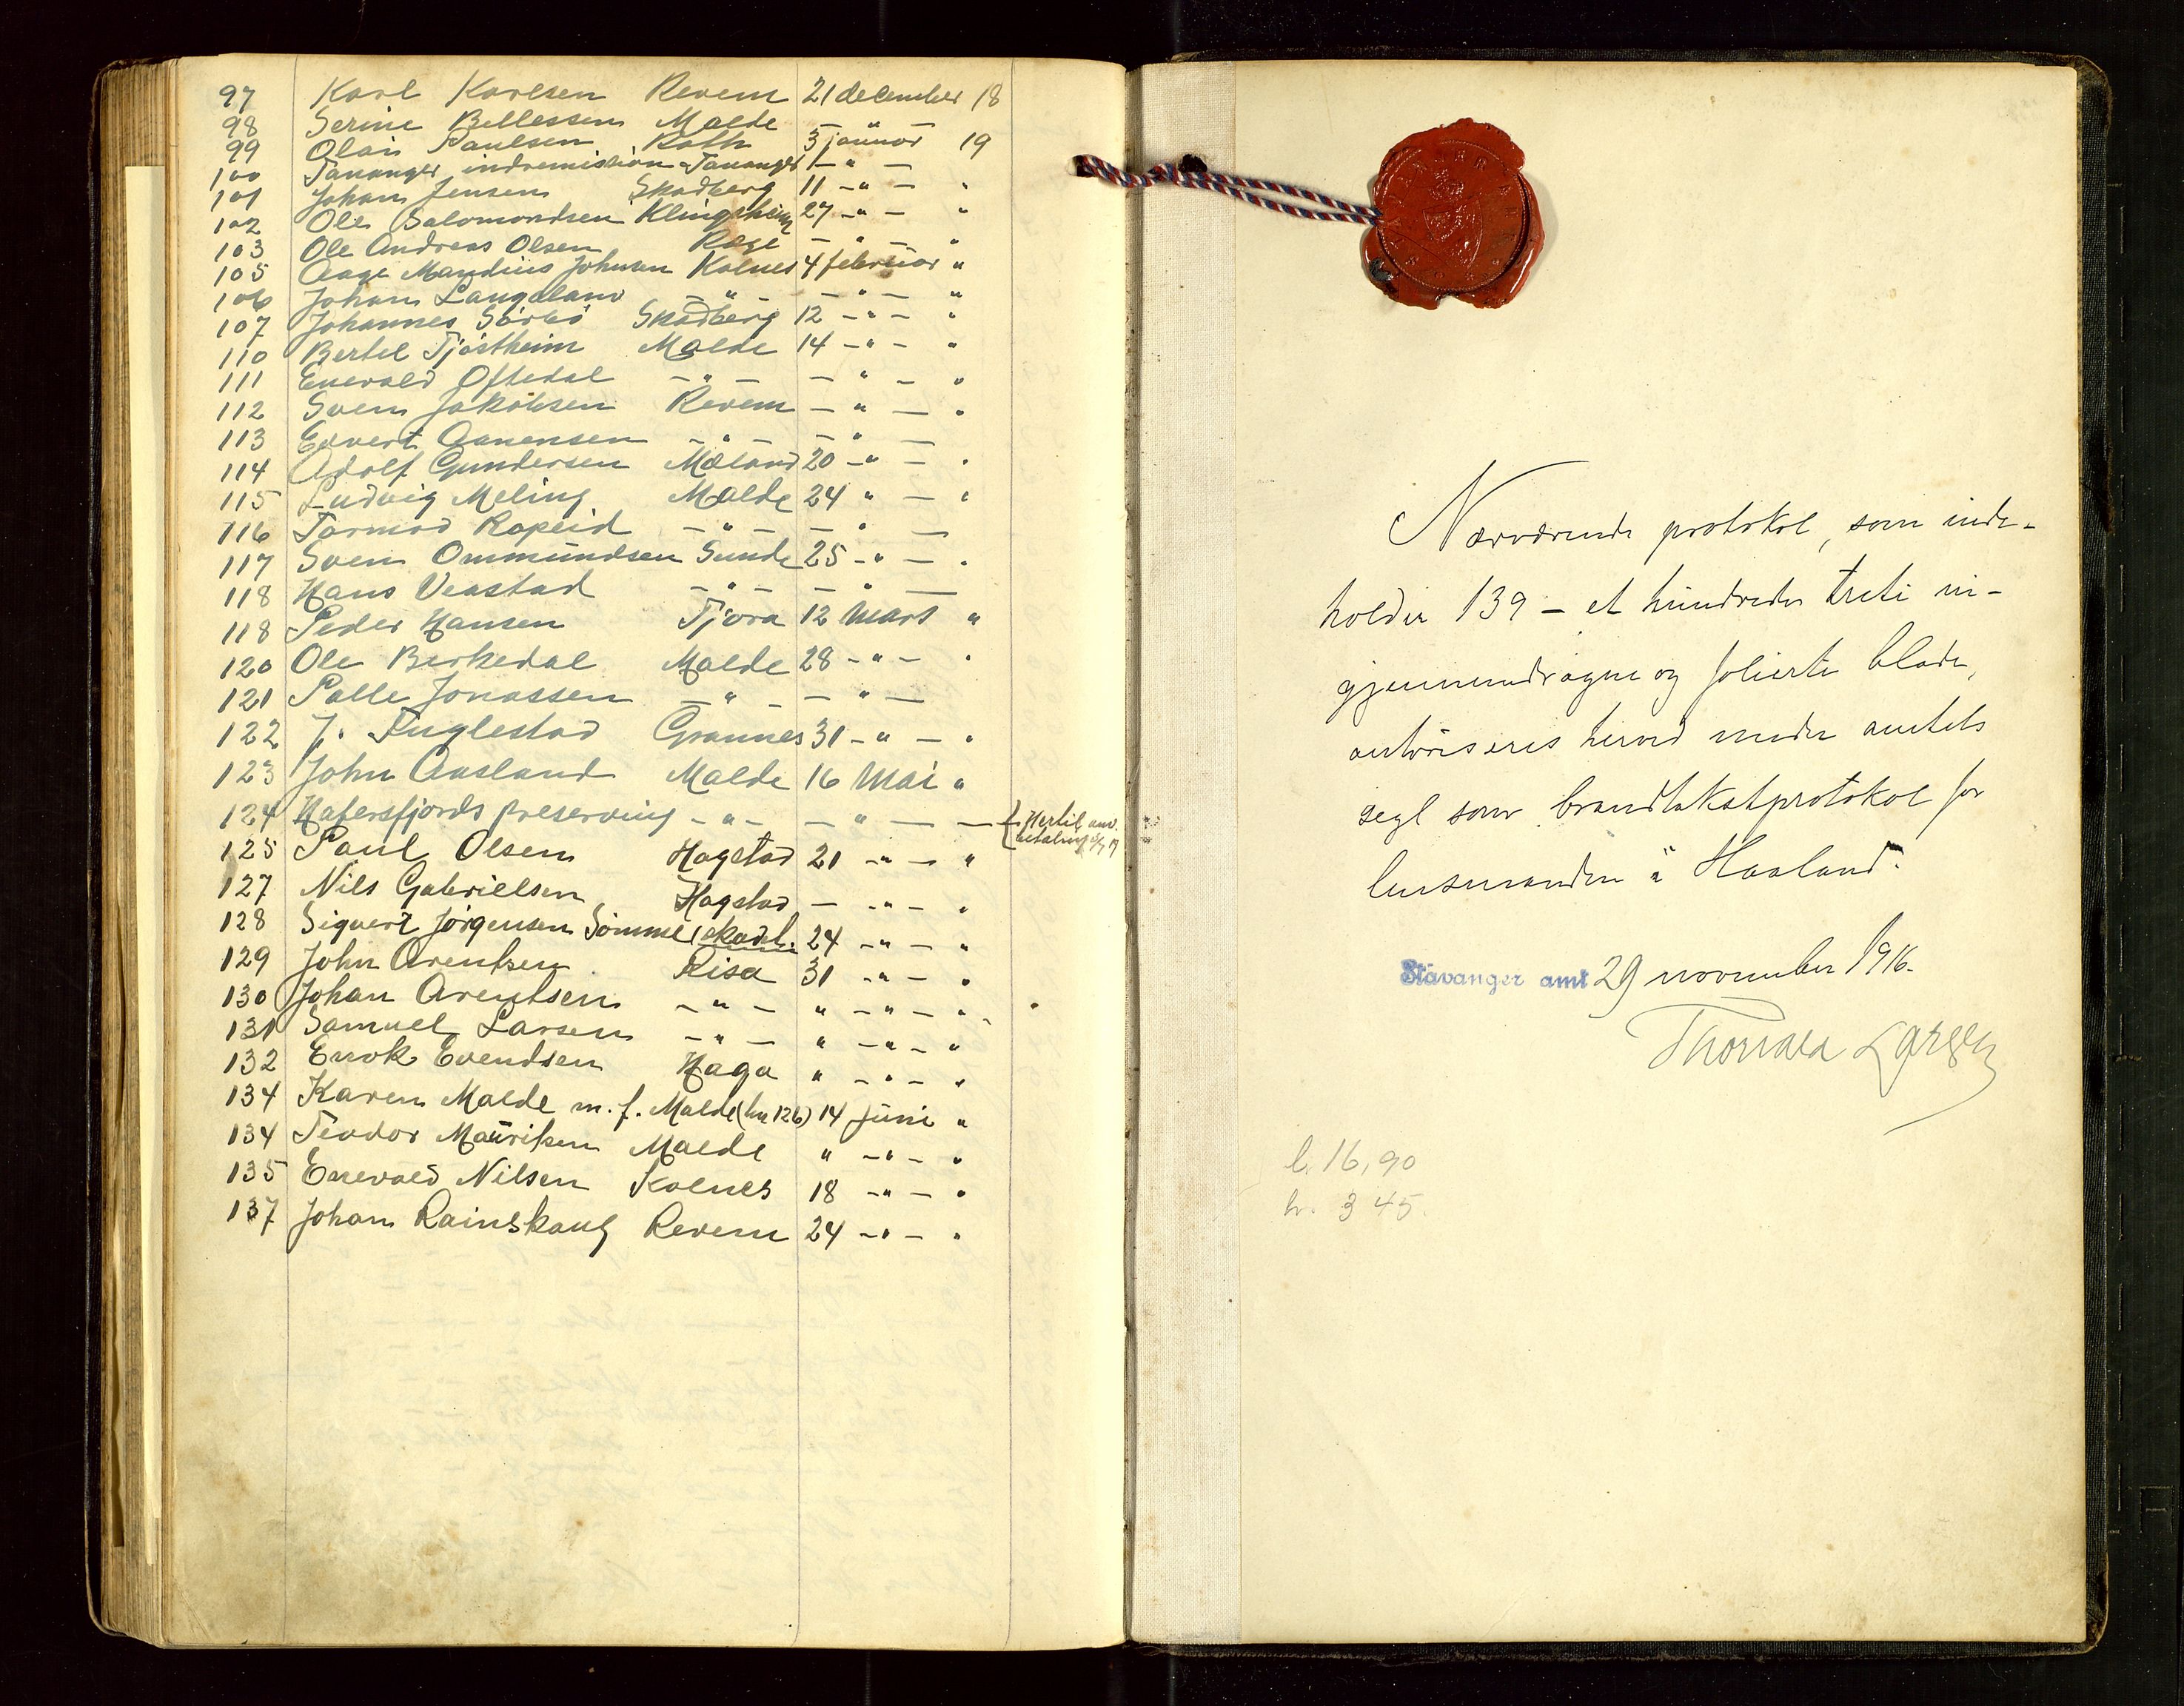 97 Karl Karlsen Revem 21 december 18
98 Serine Bellessen Malde — " —
99 Olai Paulsen Roth 3 januar 19
100 Tananger indremission - Tananger 1 — " —
101 Johan Jensen Skadberg 11 — " — "
102 Ole Salomondsen Klingsheim 27 — " — "
103 Ole Andreas Olsen Røge — " — "
105 Aage Mandius Johnsen Kolnes 4 februar "
106 Johan Langeland — " — — " — "
107 Johannes Sörbö Skadberg 12 — " — "
110 Bertel Tjöstheim Malde 14 — " — "
111 Enevald Oftedal — " — — " — "
112 Sven Jakobsen Revem — " — "
113 Edvert Aanensen — " — — " —
114 Adolf Gundersen Mæland 20 — " — "
115 Ludvig Meling Malde 24 " — "
116 Tormod Ropeid — " — — " —
117 Sven Ommundsen Sunde 25 - " — "
118 Hans Veastad — " — — " —
118 Peder Hansen Tjora 12 Mars "
120 Ole Birkedal Malde 28 - " — "
121 Palle Jonassen — " — — " —
122 J. Fuglestad Grannes 31 - " — "
123 John Aasland Malde 16 Mai "
124 Hafersfjords preserving - " - — " — — { Hertil anv.
betaling
125 Paul Olsen Hogstad 21 - " — "
127 Nils Gabrielsen Hogstad — - " — "
128 Sigvert Jörgensen Sömme (skadb. 24 - " — "
129 John Arentsen Risa 31 - " — "
130 Johan Arentsen — " — " - " — "
131 Samuel Larsen — " — " - " — "
132 Enok Evendsen Haga " - " — "
134 Karen Malde m. f. Malde (hn 126) 14 juni "
134 Teodor Mauritsen Malde " - " — "
135 Enevald Nilsen Kolnes 18 - " — "
137 Johan Rainskaug Revem 24 - " — "
Nærværende protokol, som inde-
holder 139 – et hundrede treti ni –
gjennemdragne og folierte blade,
autoriseres herved under amtets
segl som brandtakstprotokol for
lensmanden i Haaland.
Stavanger amt 29 november 1916.
Thorvald Larsen
l. 16,90
h. 3 45.